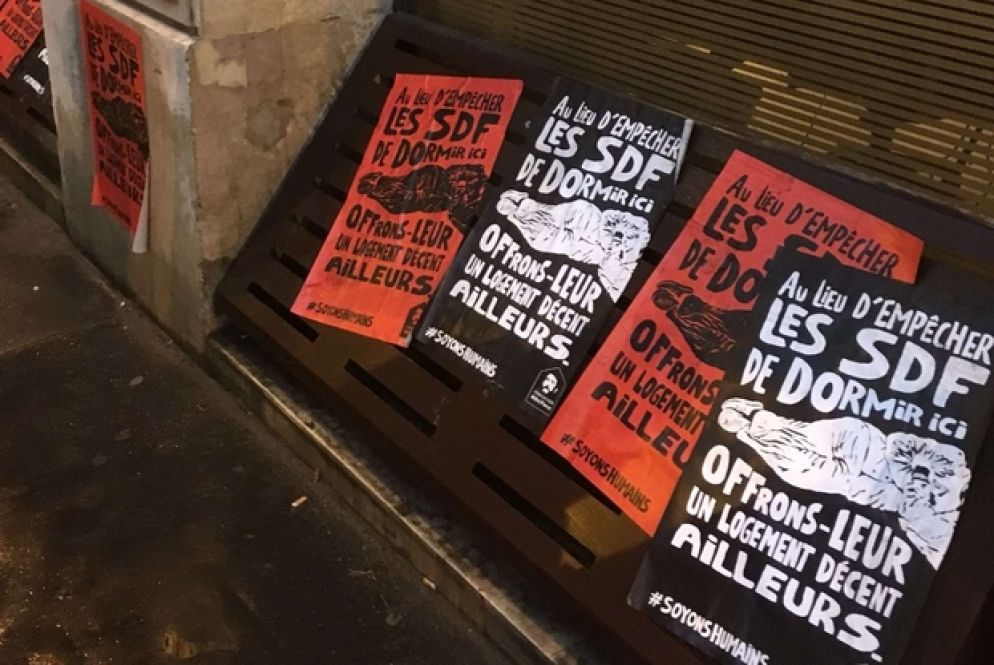 Au LiEU D'EMPÊCHER
LES SDF
DE DORMiR ici
OFFRONS-LEUR
UN LOGEMENT DÉCENT
AiLLEURS.
#SOYONSHUMAINS
Au LiEU D'EMPÊCHER
LES SDF
DE DORMiR ici
OFFRONS-LEUR
UN LOGEMENT DÉCENT
AiLLEURS.
#SOYONSHUMAINS
Au LiEU D'EMPÊCHER
LES SDF
DE DORMiR ici
OFFRONS-LEUR
UN LOGEMENT DÉCENT
AiLLEURS.
#SOYONSHUMAINS
Au LiEU D'EMPÊCHER
LES
DE DO
OFFRONS
UN LOGEMENT
AiLLEU
#SOYONSHUMAINS
Au LiEU D'EMPÊCHER
LES SDF
DE DORMiR ici
OFFRONS-LEUR
UN LOGEMENT DÉCENT
AiLLEURS.
#SOYONSHUMAINS